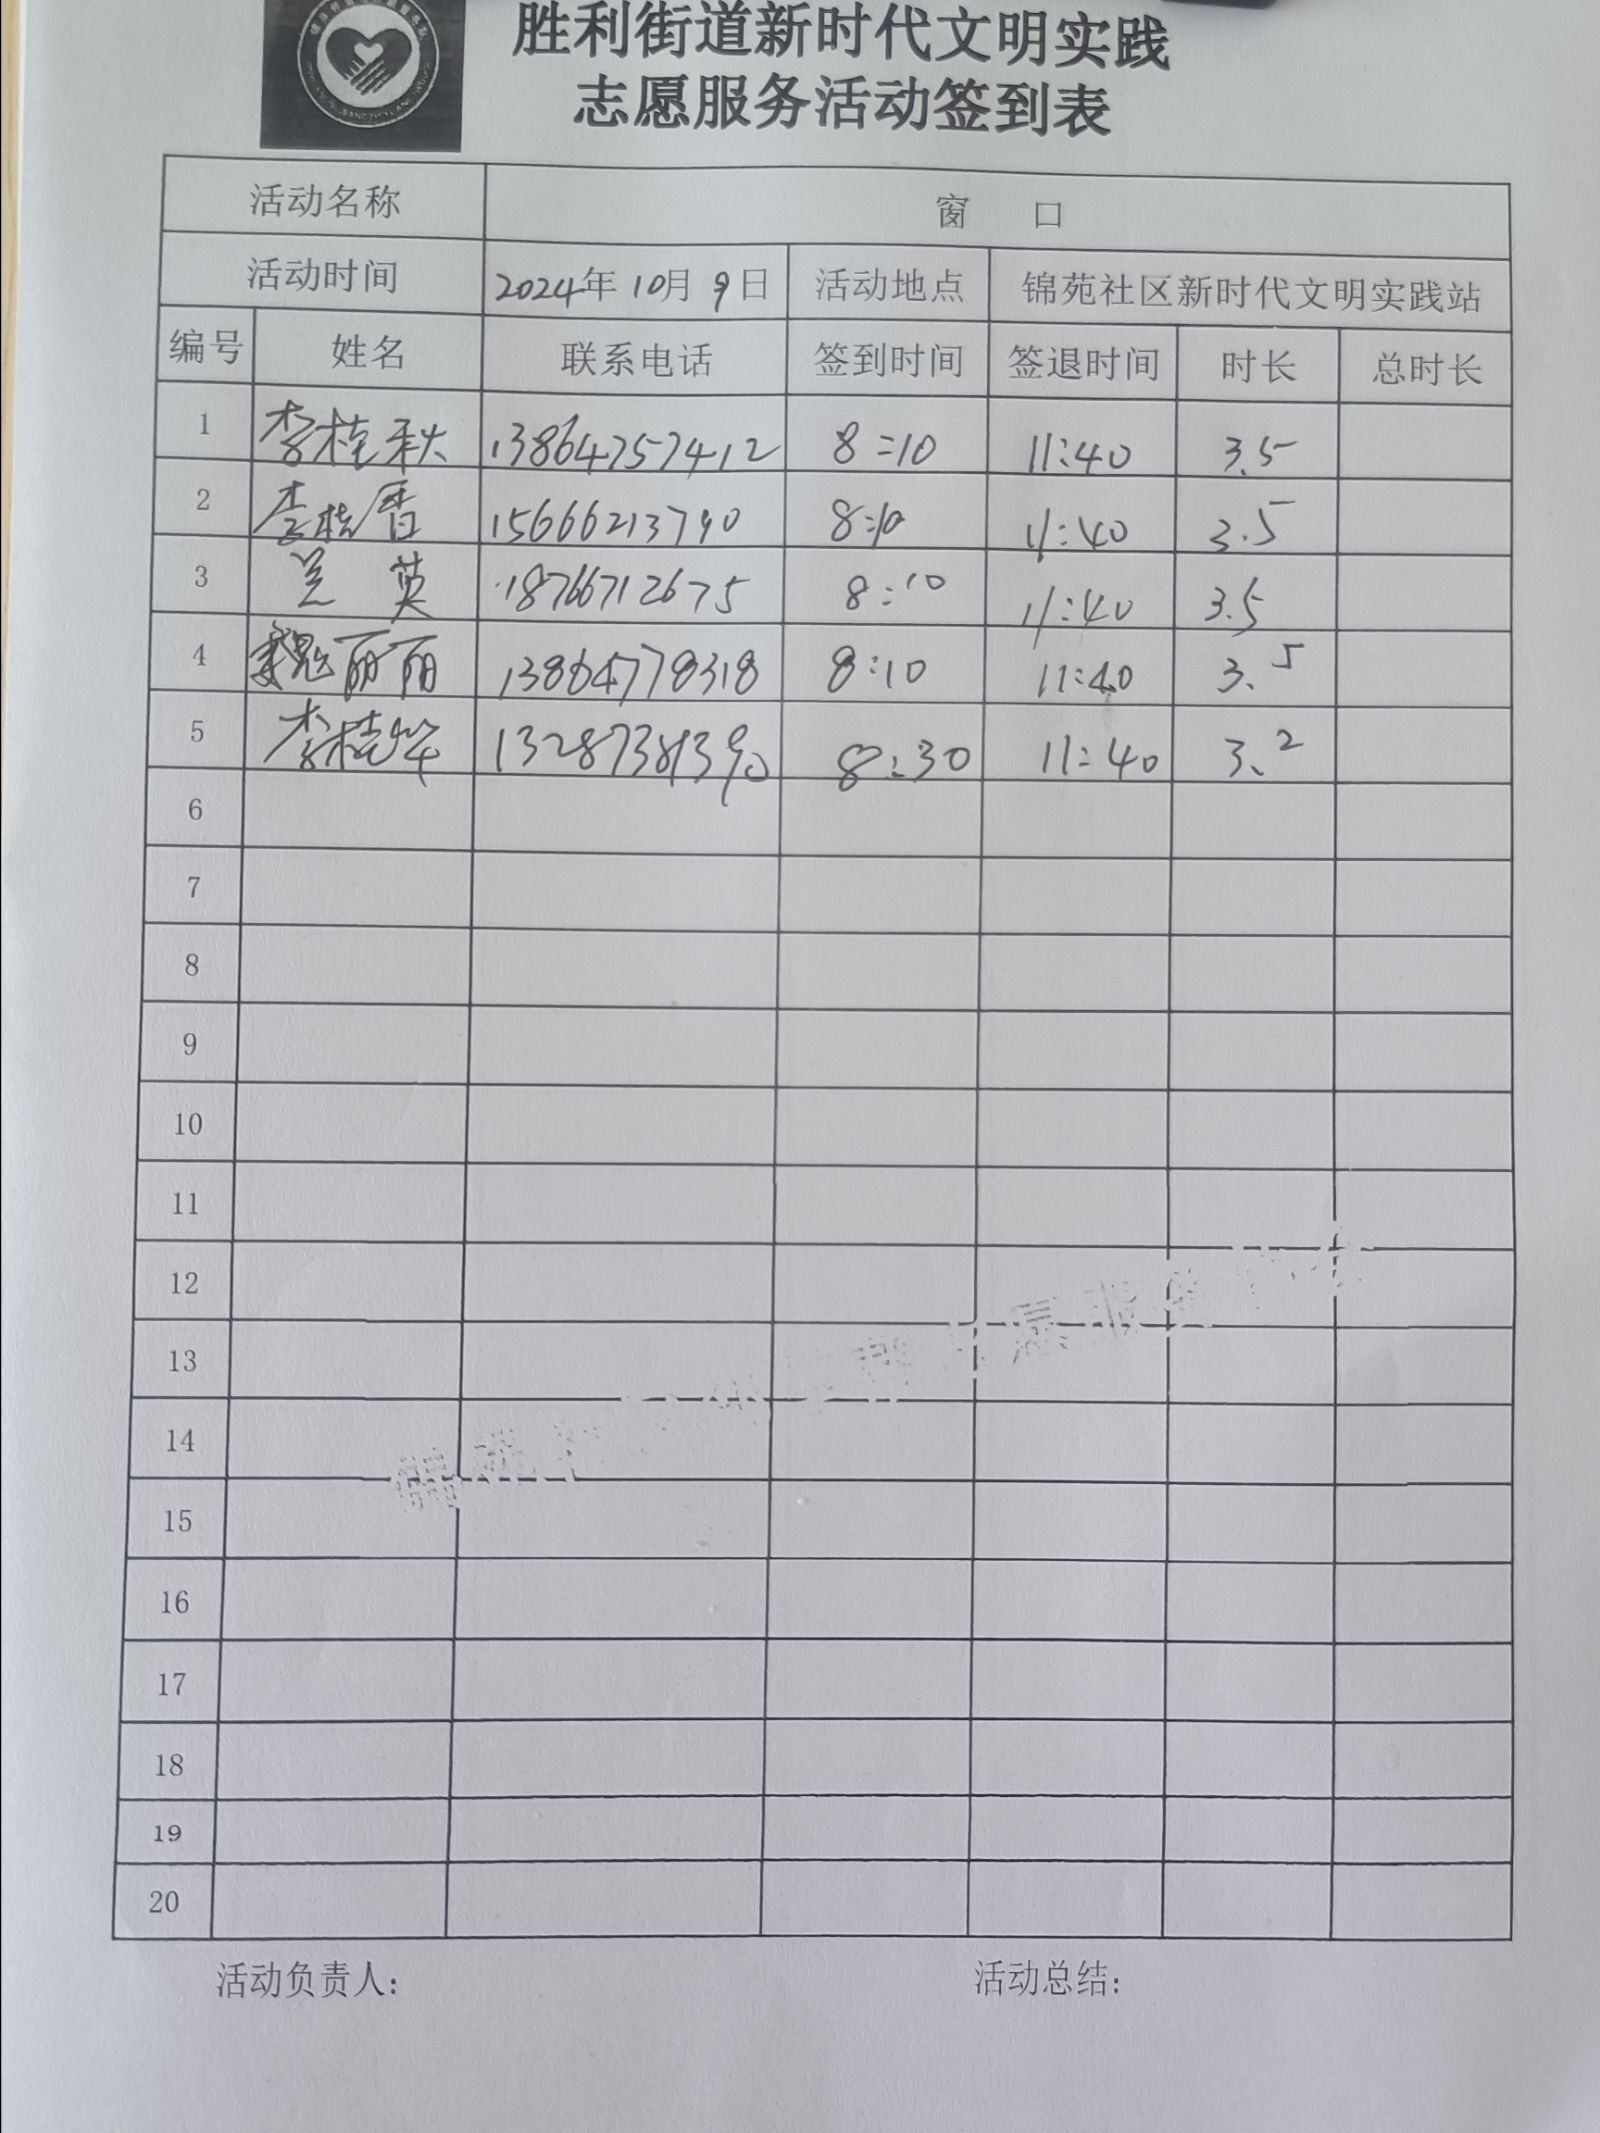 胜利街道新时代文明实践
志愿服务活动签到表
活动名称 窗 口
活动时间 2024年10月9日 活动地点 锦苑社区新时代文明实践站
编号 姓名 联系电话 签到时间 签退时间 时长 总时长
1 李桂秋 13864757412 8:10 11:40 3.5
2 李桂香 15666213790 8:10 11:40 3.5
3 兰英 18766712675 8:10 11:40 3.5
4 魏丽丽 13864778318 8:10 11:40 3.5
5 李桂华 8:30 11:40 3.2
6
7
8
9
10
11
12
13
14
15
16
17
18
19
20
活动负责人: 活动总结: